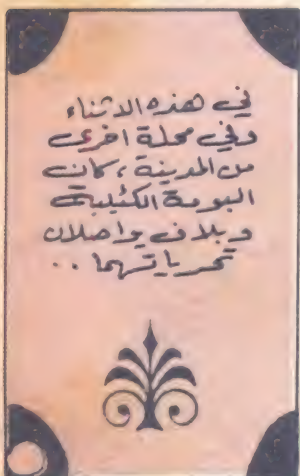 في هذه الاثناء
وفي محلة اخرى
من المدينة ، كان
البومة الكئيبة
و بلاف يواصلان
تحرياتهما . .